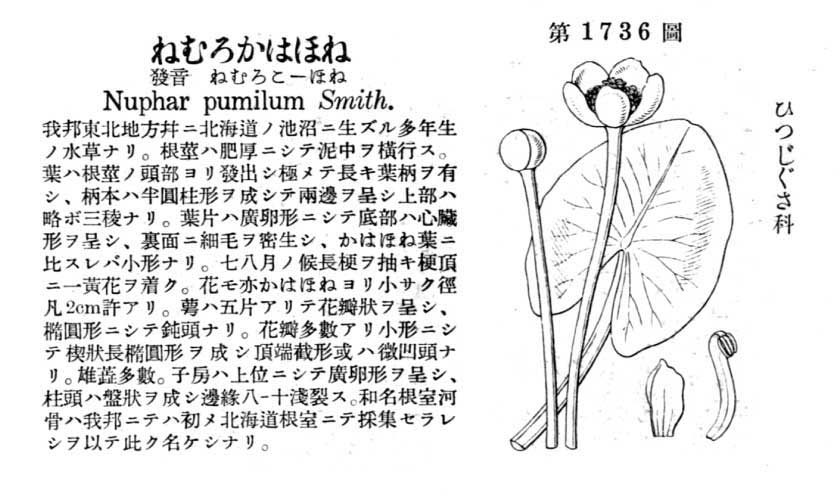 ねむろかはほね
發音 ねむろこーほね
Nuphar pumilum Smith.
我邦東北地方幷ニ北海道ノ池沼ニ生ズル多年生
ノ水草ナリ。根莖ハ肥厚ニシテ泥中ヲ橫行ス。
葉ハ根莖ノ頭部ヨリ發出シ極メテ長キ葉柄ヲ有
シ、柄本ハ半圓柱形ヲ成シテ兩邊ヲ呈シ上部ハ
略ボ三稜ナリ。葉片ハ廣卵形ニシテ底部ハ心臟
形ヲ呈シ、裏面ニ細毛ヲ密生シ、かはほね葉ニ
比スレバ小形ナリ。七八月ノ候長梗ヲ抽キ梗頂
ニ一黃花ヲ着ク。花モ亦かはほねヨリ小サク徑
凡2cm許アリ。蕚ハ五片アリテ花瓣狀ヲ呈シ、
橢圓形ニシテ鈍頭ナリ。花瓣多數アリ小形ニシ
テ楔狀長橢圓形ヲ成シ頂端截形或ハ微凹頭ナ
リ。雄蕋多數。子房ハ上位ニシテ廣卵形ヲ呈シ、
柱頭ハ盤狀ヲ成シ邊緣八-十淺裂ス。和名根室河
骨ハ我邦ニテハ初メ北海道根室ニテ採集セラレ
シヲ以テ此ク名ケシナリ。
第1736圖
ひつじぐさ科